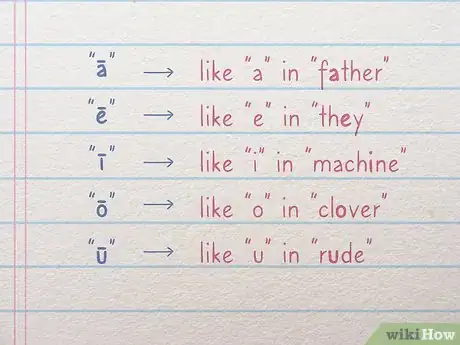 "ā" → like "a" in "father"
"ē" → like "e" in "they"
"ī" → like "i" in "machine"
"ō" → like "o" in "clover"
"ū" → like "u" in "rude"
wikiHow